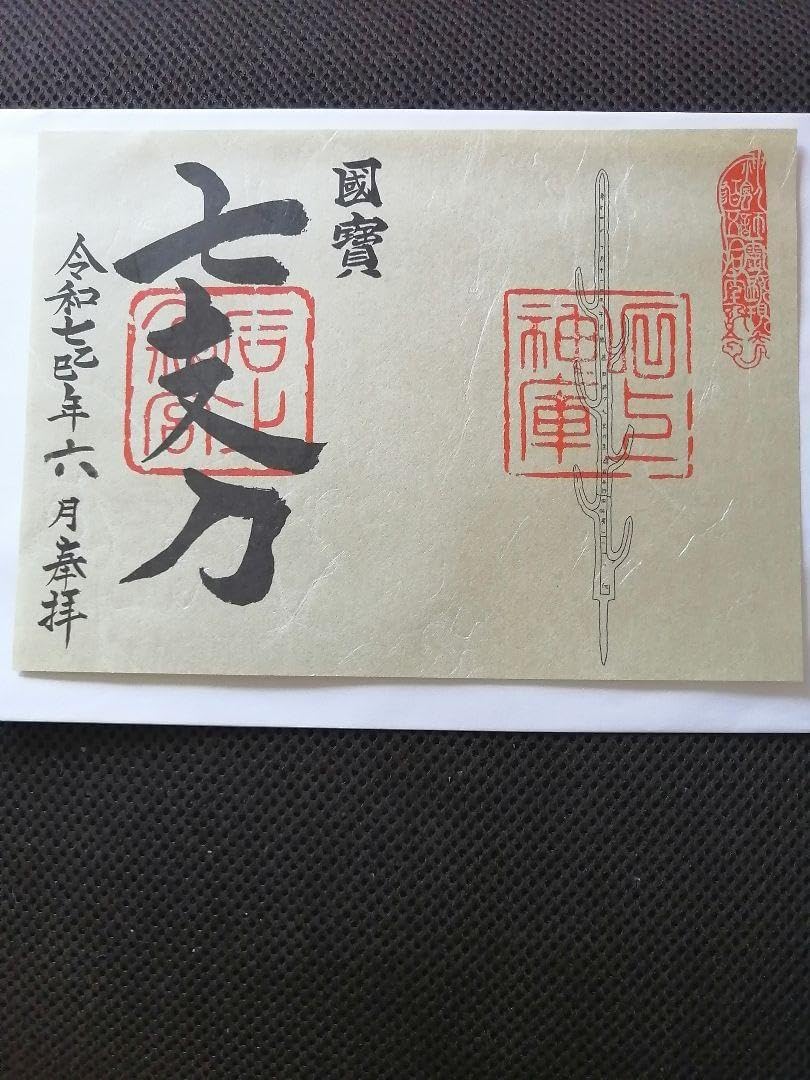 石上
神庫
國寶
七支刀
石上
神宮
令和七乙巳年六月奉拝